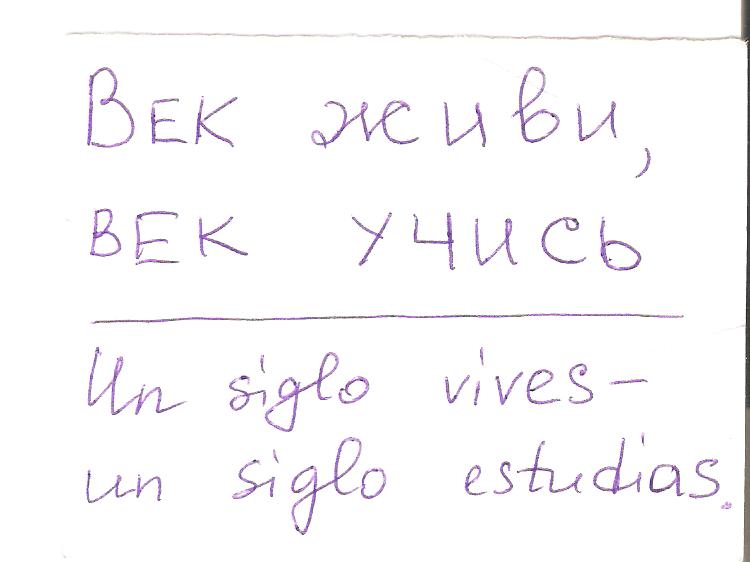 Век живи,
век учись
Un siglo vives—
un siglo estudias.